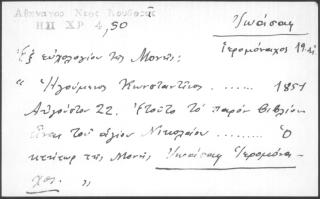 Ἰωάσαφ
ΗΠ ΧΡ 4,50
Ἱερομόναχος 19
Ἐξ εὐχολογίου τῆς Μονῆς:
" Ἡγούμενος Κωνσταντῖνος ....... 1851
Αὐγούστου 22. Ἐτοῦτο τὸ παρὸν βιβλίον
εἶναι τοῦ ἁγίου Νικολάου ......... Ὁ
κτίτωρ τῆς Μονῆς Ἰωάσαφ Ἱερομόνα-
χος. "